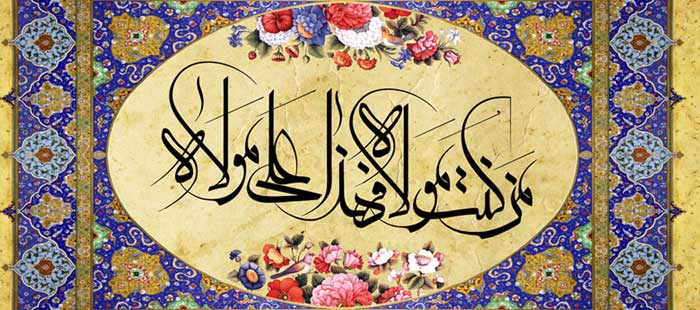 من كنت مولاه فهذا علی مولاه